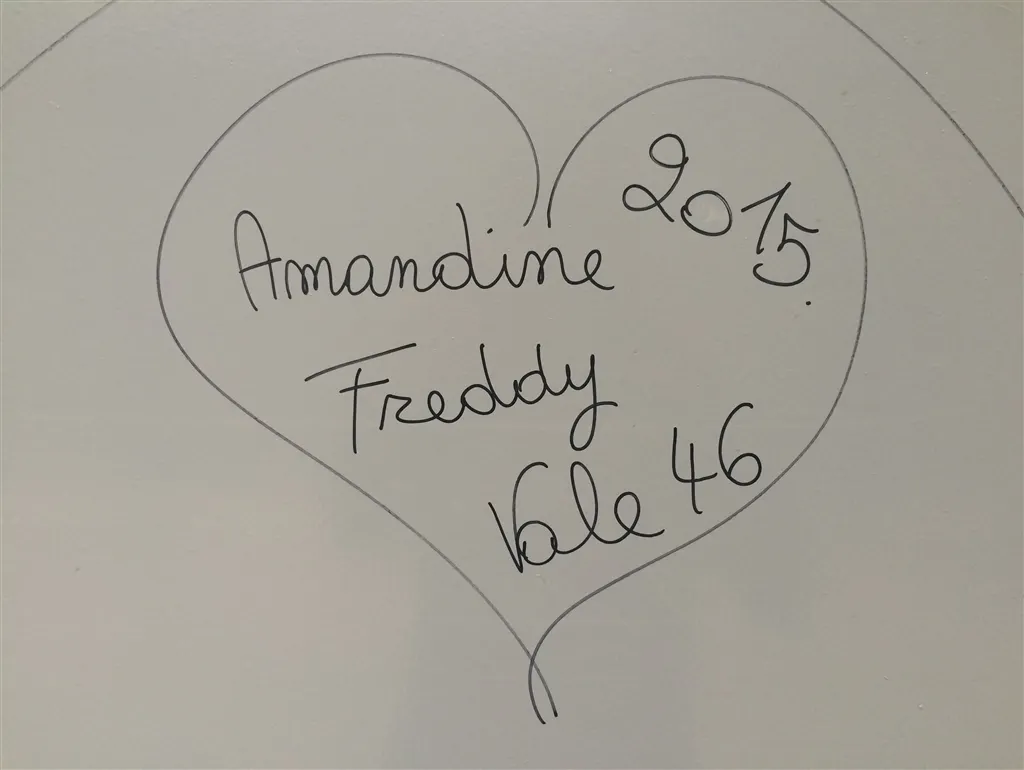 2015.
Amandine
Freddy
Vale 46